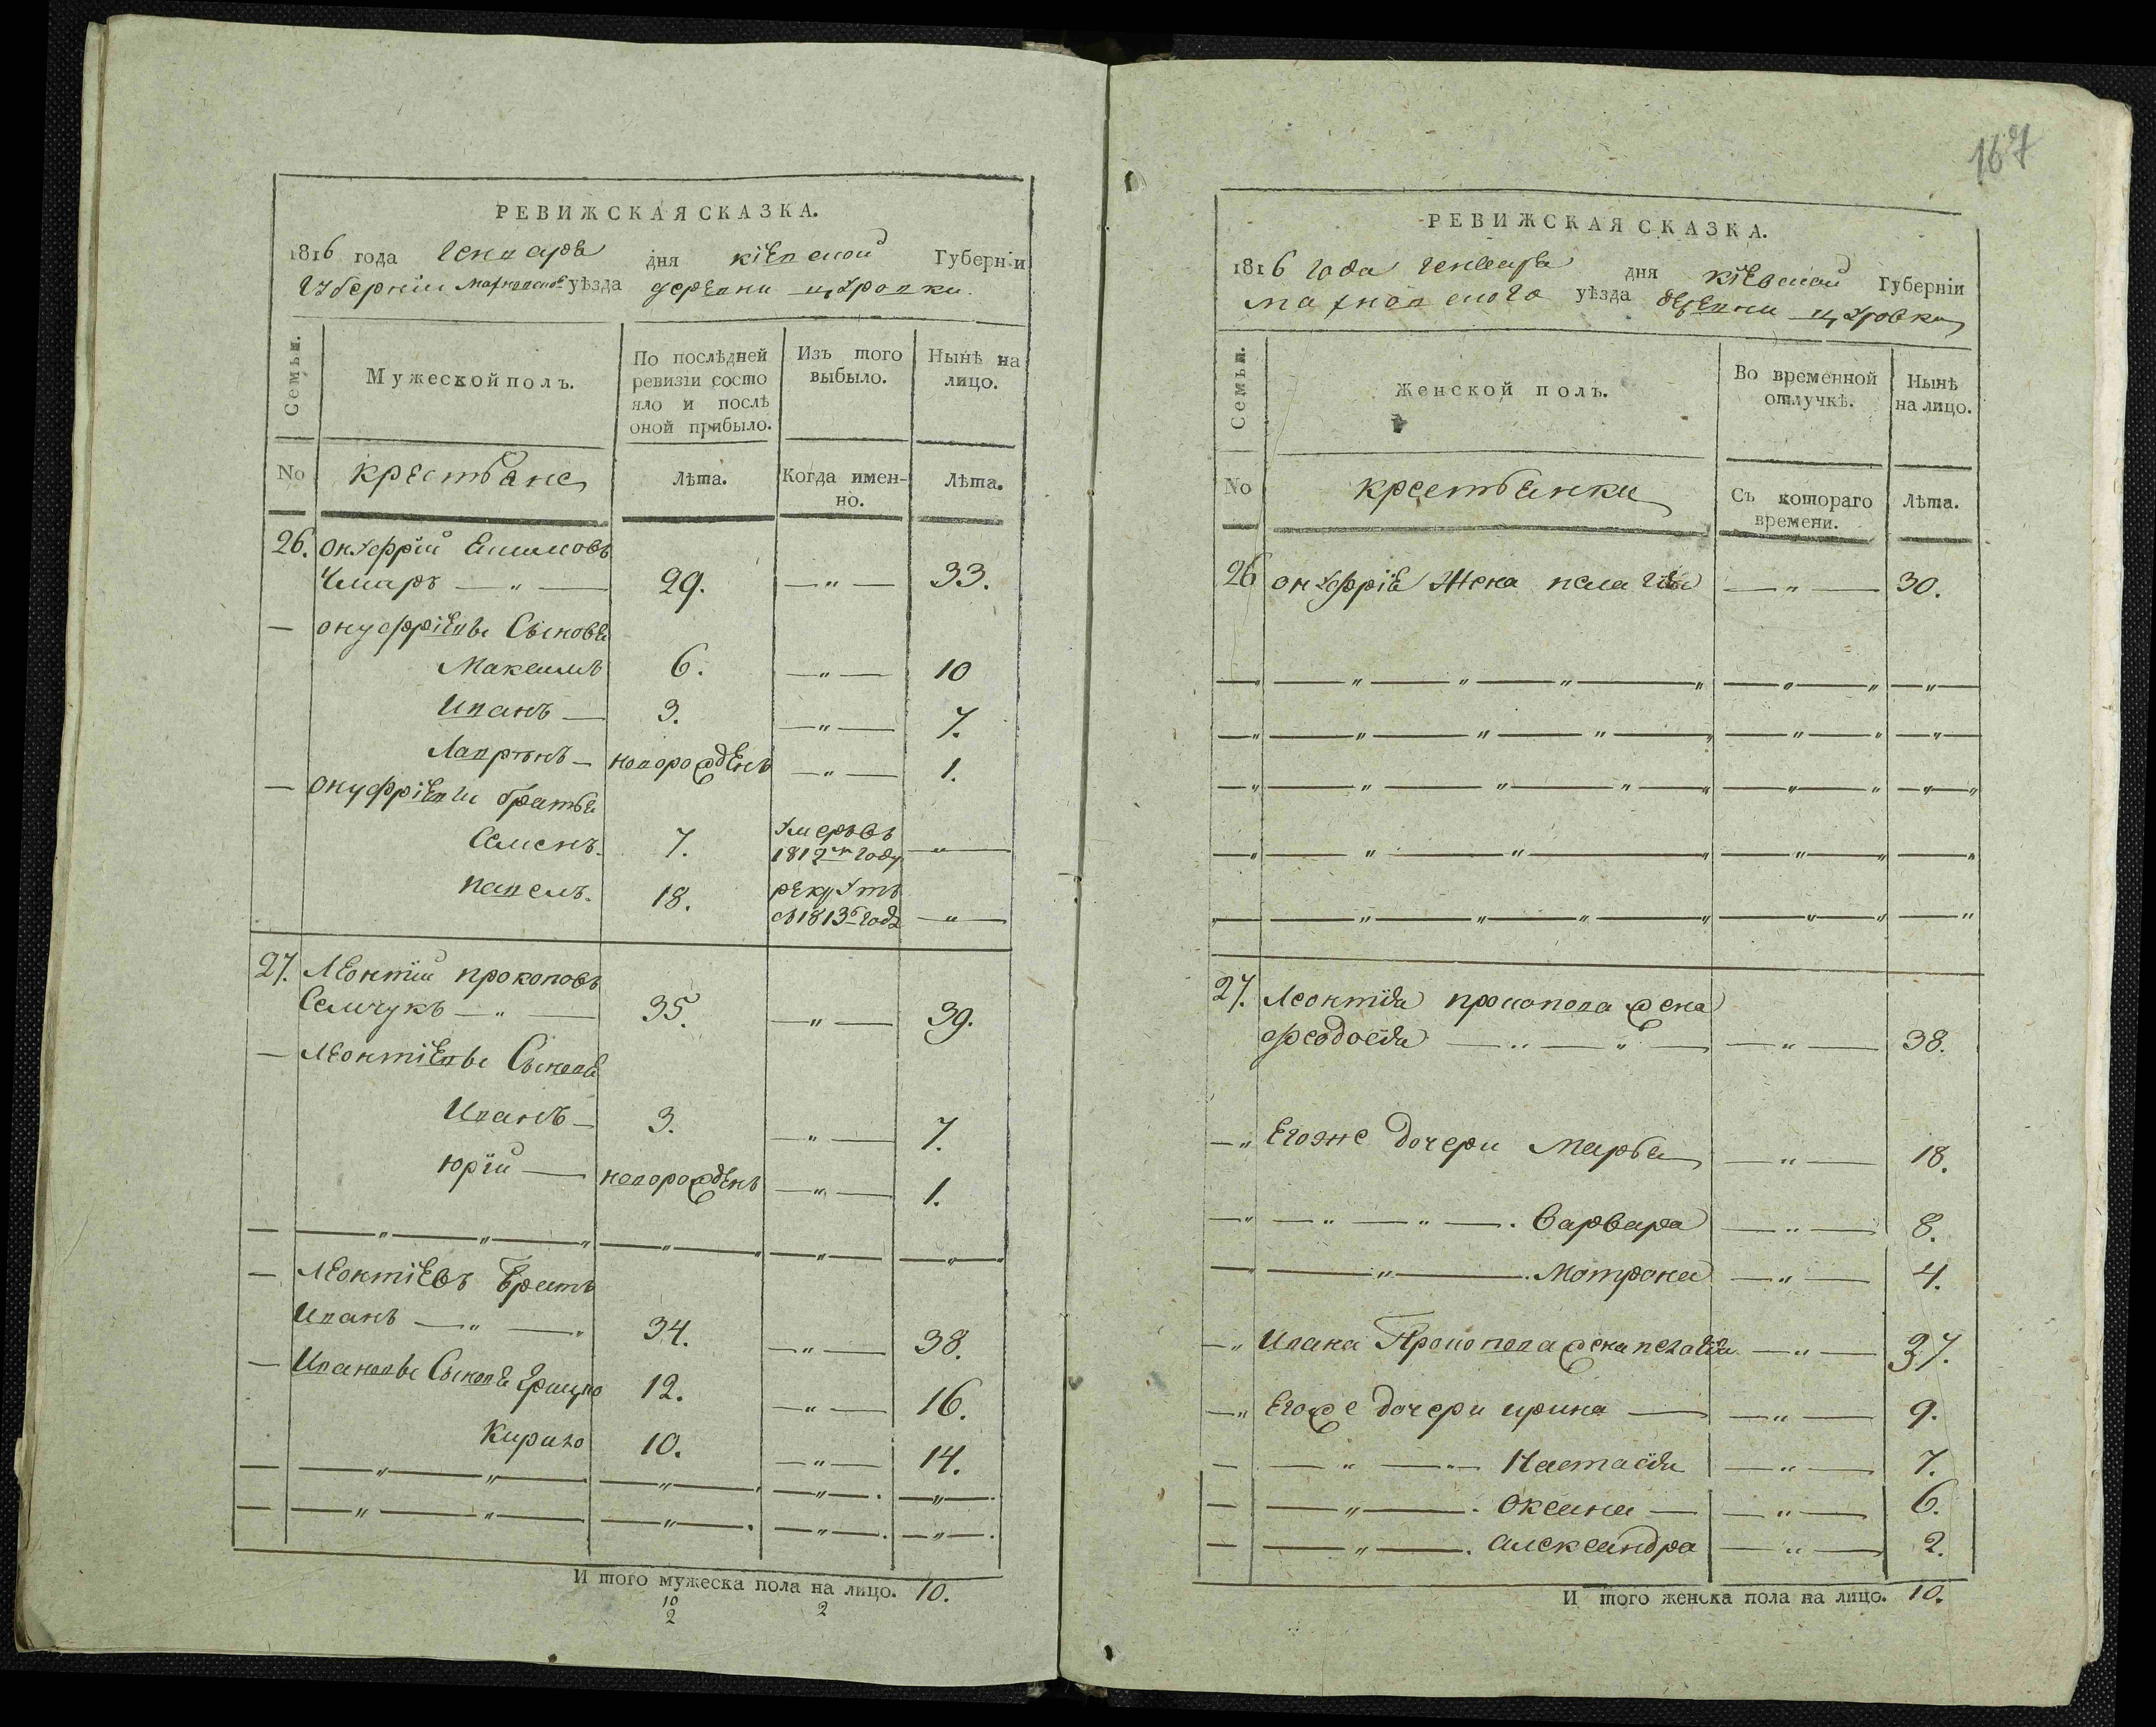 РЕВИЖСКАЯ СКАЗКА.
1816 года Генваря дня кіевской Губерніи
Губерніи Махновск. уѣзда деревни щуровки
Семьи. Мужеской полъ. По послѣдней ревизіи состояло и послѣ оной прибыло. Изъ того выбыло. Нынѣ на лицо.
No крестьяне Лѣта. Когда именно. Лѣта.
26. Онуфрій
Чмаръ — „ — 29. — „ — 33.
— онуфріевы Сыновья
Максимъ 6. — „ — 10
Иванъ — 3. — „ — 7.
Лаврѣнъ — новорожденъ — „ — 1.
— онуфріевы братья
Семенъ. 7. Умеръ въ 1812м году — „ —
павелъ. 18. рекрутъ съ 1813го года — „ —
27. Леонтій прокоповъ
Семчукъ — „ — 35. — „ — 39.
— Леонтіевы Сыновья
Иванъ — 3. — „ — 7.
Юрій — новорожденъ — „ — 1.
— — „ — „ — „ — „ — „ — „ — „
— Леонтіевъ братъ
Иванъ — „ — „ 34. — „ — 38.
— Ивановы Сыновья 12. — „ — 16.
Кирило 10. — „ — 14.
— — „ — „ — — „ — . — „ — . — „ — .
— — „ — „ — — „ — . — „ — . — „ — .
И того мужеска пола на лицо. 10.
10 2
2
167
РЕВИЖСКАЯ СКАЗКА.
1816 года генваря дня кіевской Губерніи
махновского уѣзда деревни щуровки
Семьи. Женской полъ. Во временной отлучкѣ. Нынѣ на лицо.
No крестьянки Съ котораго времени. Лѣта.
26 онуфрія жена пелагія — „ — 30.
— „ — „ — „ — „ — „ — „ — „ — „ —
— „ — „ — „ — „ — „ — „ — „ — „ —
— „ — „ — „ — „ — „ — „ — „ — „ — „
— „ — „ — „ — „ — „ — „ — „
„ — „ — „ — „ — „ — „ — „ — „
27. Леонтія прокопова жена
феодосія — „ — „ — — „ — 38.
— „ Егоже дочери Марья — „ — 18.
— „ — „ — „ — . Варвара — „ — 8.
— — „ — . Мотрона — „ — 4.
— „ Ивана Прокопова жена пелагія — „ — 37.
— „ Егоже дочери ирина — — „ — 9.
— — „ — „ — Настасія — „ — 7.
— — „ — . Оксана — — „ — 6.
— — „ — . александра — „ — 2.
И того женска пола на лицо. 10.